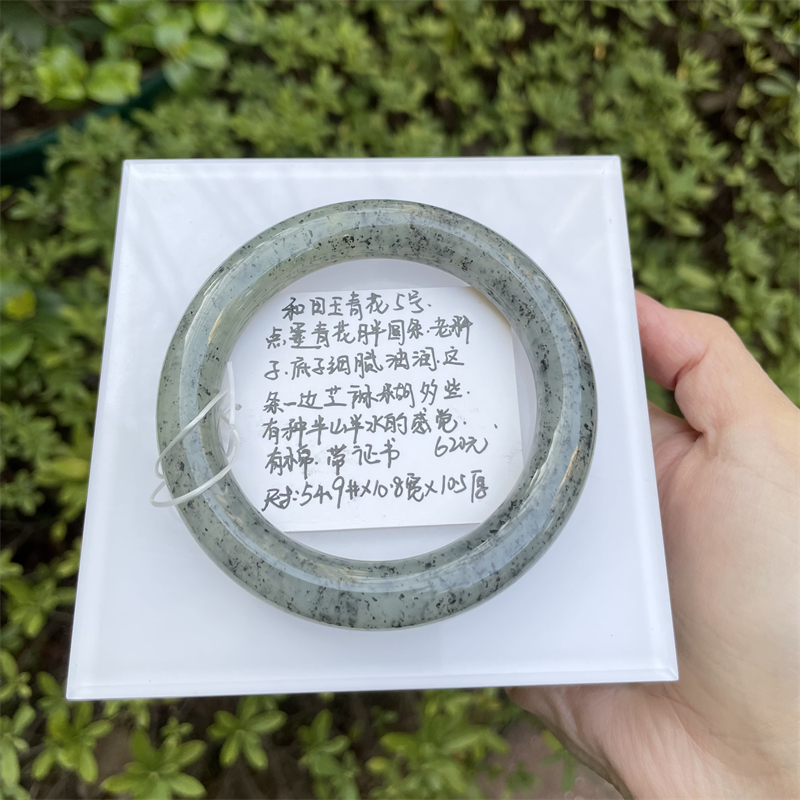 和田玉青花5号.
点墨青花胖圆条.老料
子.底子细腻油润.这
条一边芝麻糊多些.
有种半山半水的感觉.
有棉.带证书 620元
尺寸:54.9#×10.8宽×10.5厚